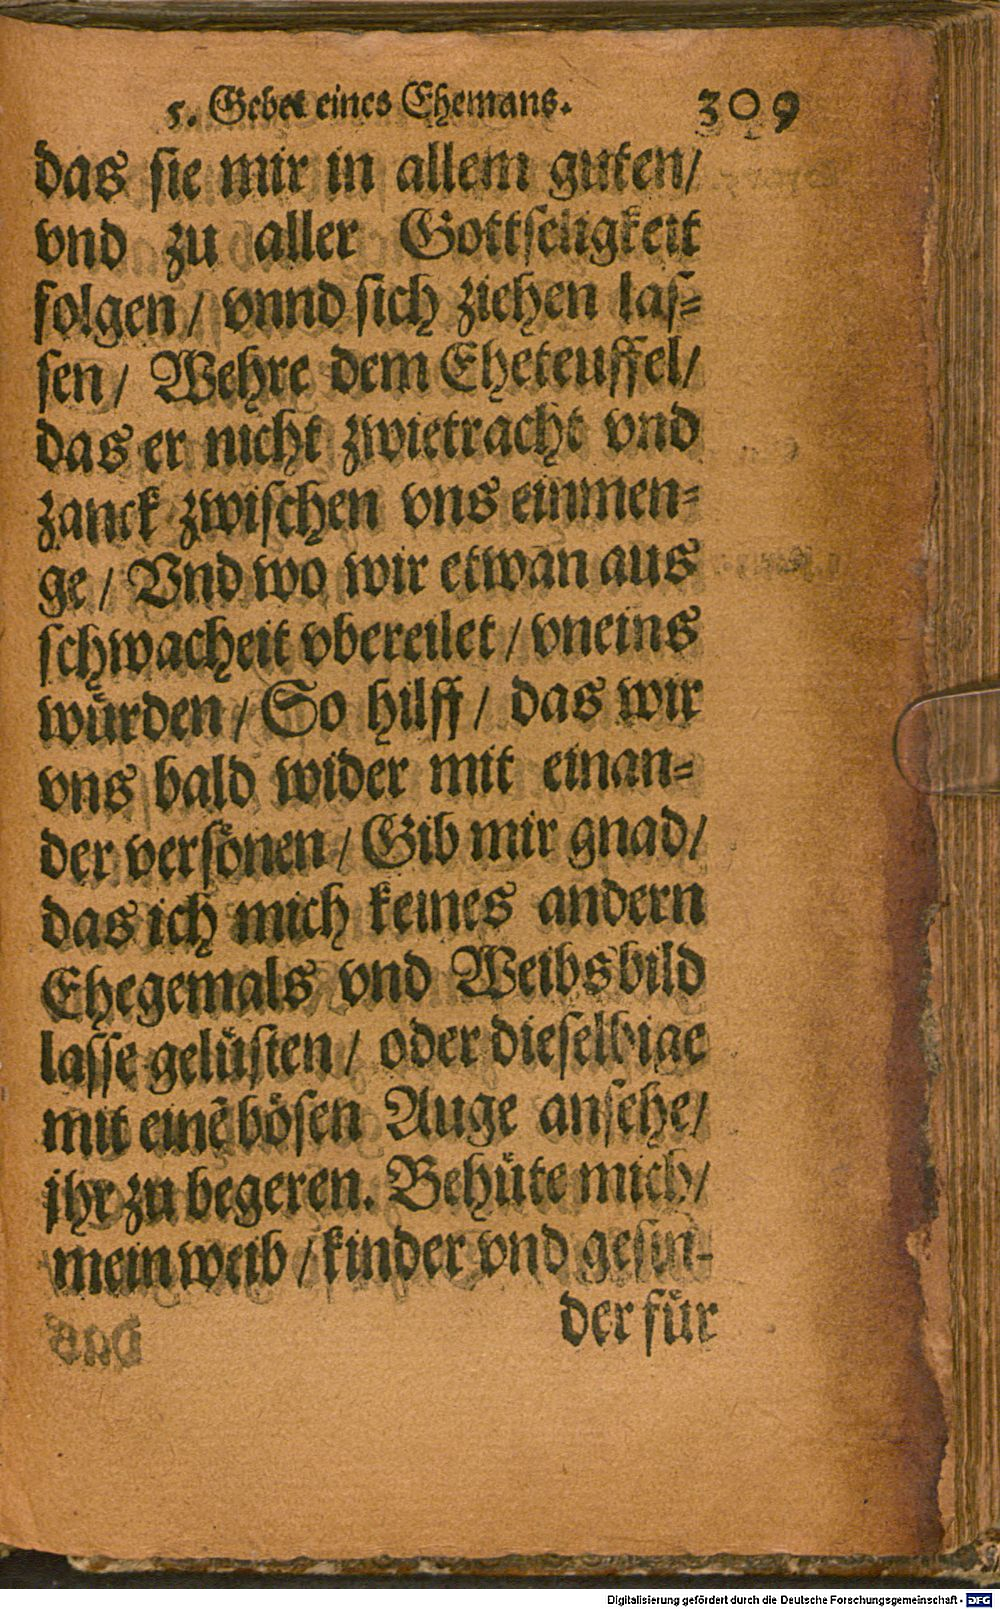 5. Gebet eines Ehemans. 309
das sie mir in allem guten/
vnd zu aller Gottseligkeit
folgen/ vnnd sich ziehen las-
sen/ Wehre dem Eheteuffel/
das er nicht zwietracht vnd
zanck zwischen vns einmen-
ge/ Vnd wo wir etwan aus
schwacheit vbereilet/ vneins
würden/ So hilff/ das wir
vns bald wider mit einan-
der versönen/ Gib mir gnad/
das ich mich keines andern
Ehegemals vnd Weibsbild
lasse gelüsten/ oder dieselbige
mit einē bösen Auge ansehe/
jhr zu begeren. Behüte mich/
mein weib/ kinder vnd gesin-
der für
Digitalisierung gefördert durch die Deutsche Forschungsgemeinschaft - DFG